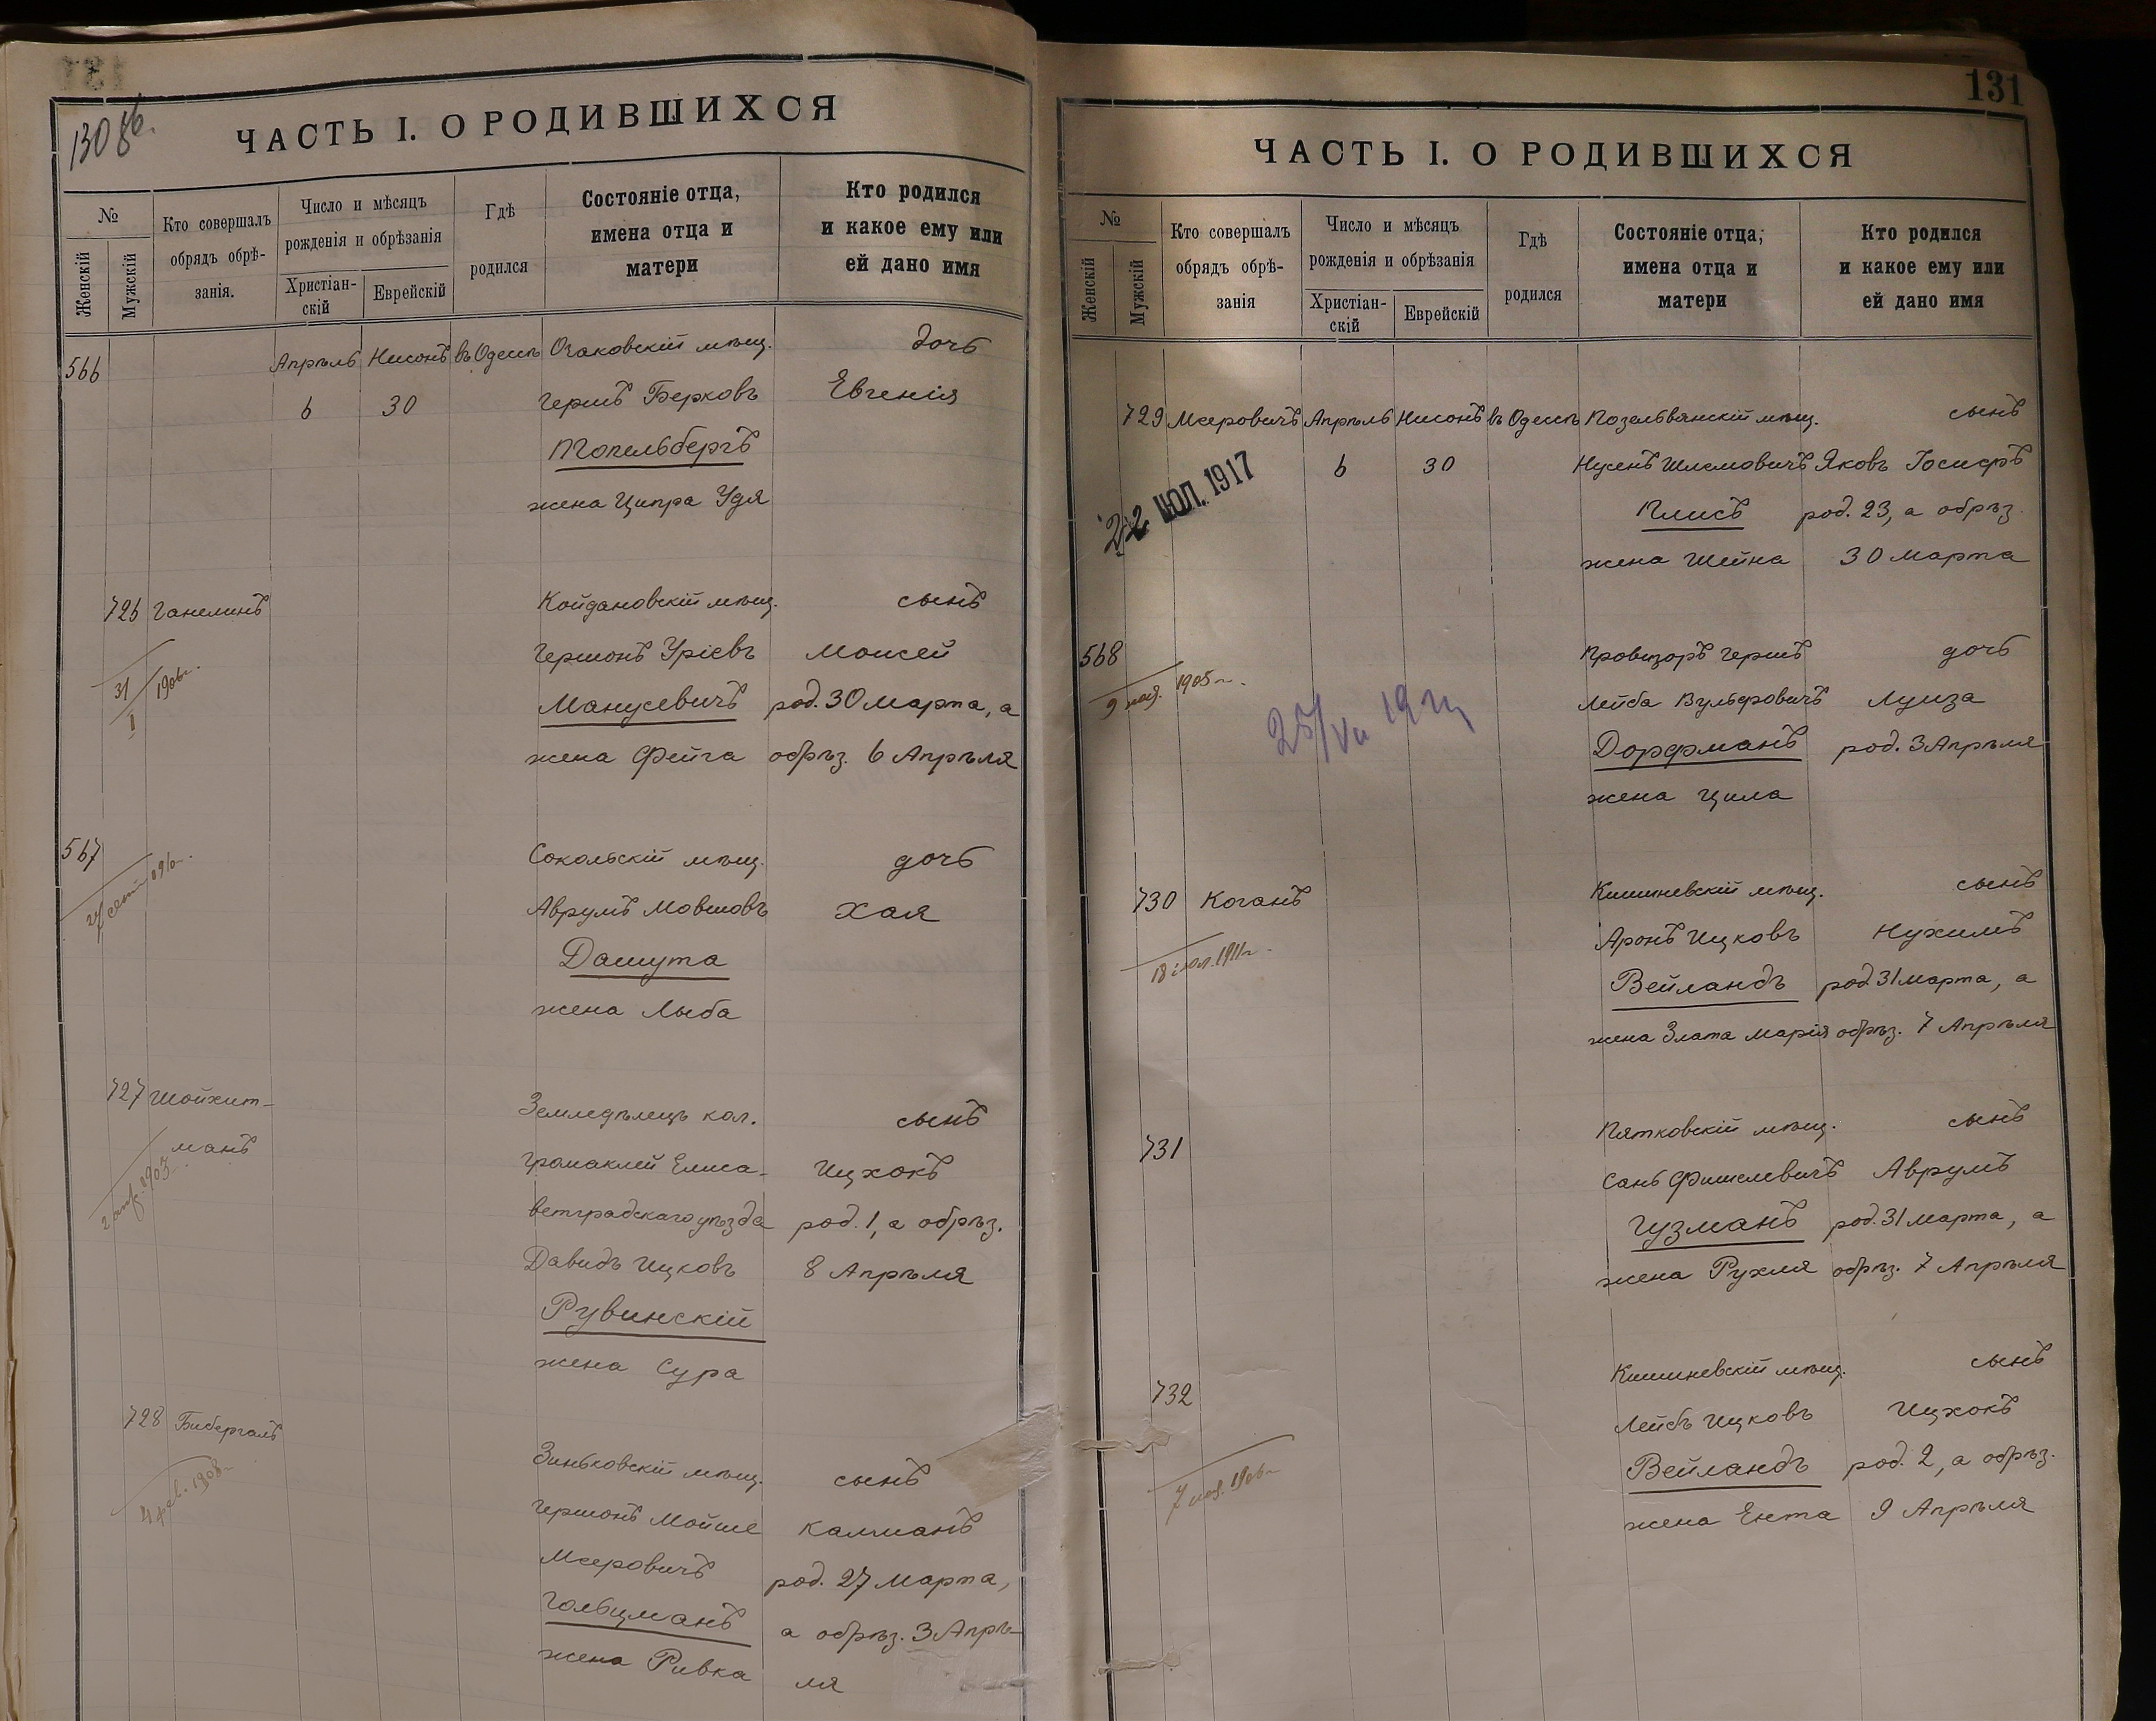 130 об.
ЧАСТЬ I. О РОДИВШИХСЯ
№
Женскій
Мужскій
Кто совершалъ
обрядъ обрѣ-
занія.
Число и мѣсяцъ
рожденія и обрѣзанія
Христіан-
скій
Еврейскій
Гдѣ
родился
Состояніе отца,
имена отца и
матери
Кто родился
и какое ему или
ей дано имя
566 Апрѣль Нисонъ въ Одессѣ Очаковскій мѣщ. дочь
6 30 Гершъ Берковъ Евгенія
Топельбергъ
жена Ципра Удя
726 Ганелинъ Койдановскій мѣщ. сынъ
Гершонъ Уріевъ Моисей
31/I 1906г.
Манусевичъ род. 30 Марта, а
жена Фейга обрѣз. 6 Апрѣля
567 Сокольскій мѣщ. дочь
Аврумъ Мовшовъ Хая
Дашута
жена Лыба
727 Шойхит- Земледѣлецъ кол. сынъ
манъ Громаклей Елиса- Ицхокъ
ветградскаго уѣзда род. 1, а обрѣз.
Давидъ Ицковъ 8 Апрѣля
Рувинскій
жена Сура
728 Бибергалъ Зиньковскій мѣщ. сынъ
4 фев. 1908г.
Гершонъ Мойше Калманъ
Мееровичъ род. 27 Марта,
Гольцманъ а обрѣз. 3 Апрѣ-
жена Ривка ля
131
ЧАСТЬ I. О РОДИВШИХСЯ
№
Женскій
Мужскій
Кто совершалъ
обрядъ обрѣ-
занія
Число и мѣсяцъ
рожденія и обрѣзанія
Христіан-
скій
Еврейскій
Гдѣ
родился
Состояніе отца,
имена отца и
матери
Кто родился
и какое ему или
ей дано имя
729 Мееровичъ Апрѣль Нисонъ въ Одессѣ Позельвянскій мѣщ. сынъ
6 30 Нусенъ Шлемовичъ Яковъ Іосифъ
22 ІЮЛ. 1917
Плисъ род. 23, а обрѣз.
жена Шейна 30 Марта
568 Провизоръ Гершъ дочь
9 ноя. 1905г.
Лейба Вульфовичъ Луиза
25/VII 19
Дорфманъ род. 3 Апрѣля
жена Цила
730 Коганъ Кишиневскій мѣщ. сынъ
Аронъ Ицковъ Нухимъ
18 іюл. 1911г.
Вейландъ род 31 Марта, а
жена Злата Марія обрѣз. 7 Апрѣля
731 Пятковскій мѣщ. сынъ
Санъ Фишелевичъ Аврумъ
Гузманъ род. 31 Марта, а
жена Рухля обрѣз. 7 Апрѣля
732 Кишиневскій мѣщ. сынъ
Лейбъ Ицковъ Ицхокъ
7 ноя. 1906г
Вейландъ род. 2, а обрѣз.
жена Ента 9 Апрѣля